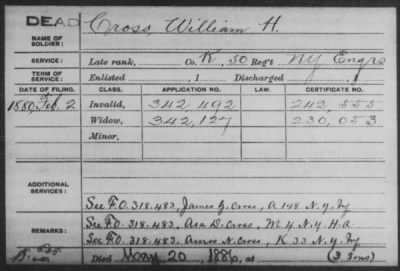 DEAD
NAME OF SOLDIER: Cross, William H.
SERVICE: Late rank, Co. K, 50 Reg't NY Engrs
TERM OF SERVICE: Enlisted , 1 Discharged , 1
DATE OF FILING. CLASS. APPLICATION NO. LAW. CERTIFICATE NO.
1880, Feb. 2 Invalid, 342,492 242,555
Widow, 342,127 230,053
Minor,
ADDITIONAL SERVICES:
See F.O. 318.483, James J. Cross, A 148 N.Y. Inf
REMARKS: See F.O. 318.483, Asa D. Cross, M 4 N.Y. H.a
See F.O. 318.483, Amos N. Cross, K 33 N.Y. Inf
Died May 20, 1886, at (3 Sons)